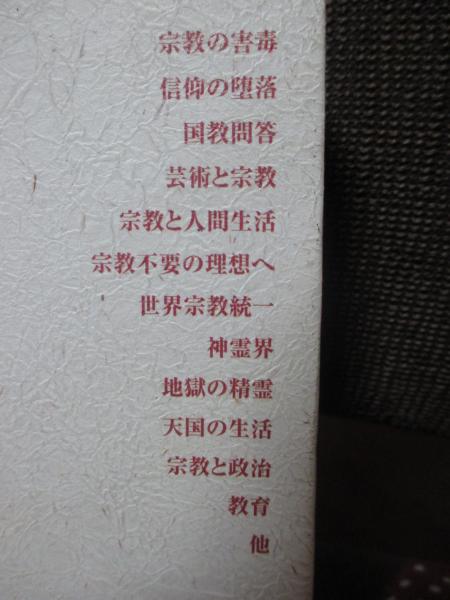 宗教の害毒
信仰の堕落
国教問答
芸術と宗教
宗教と人間生活
宗教不要の理想へ
世界宗教統一
神霊界
地獄の精霊
天国の生活
宗教と政治
教育
他